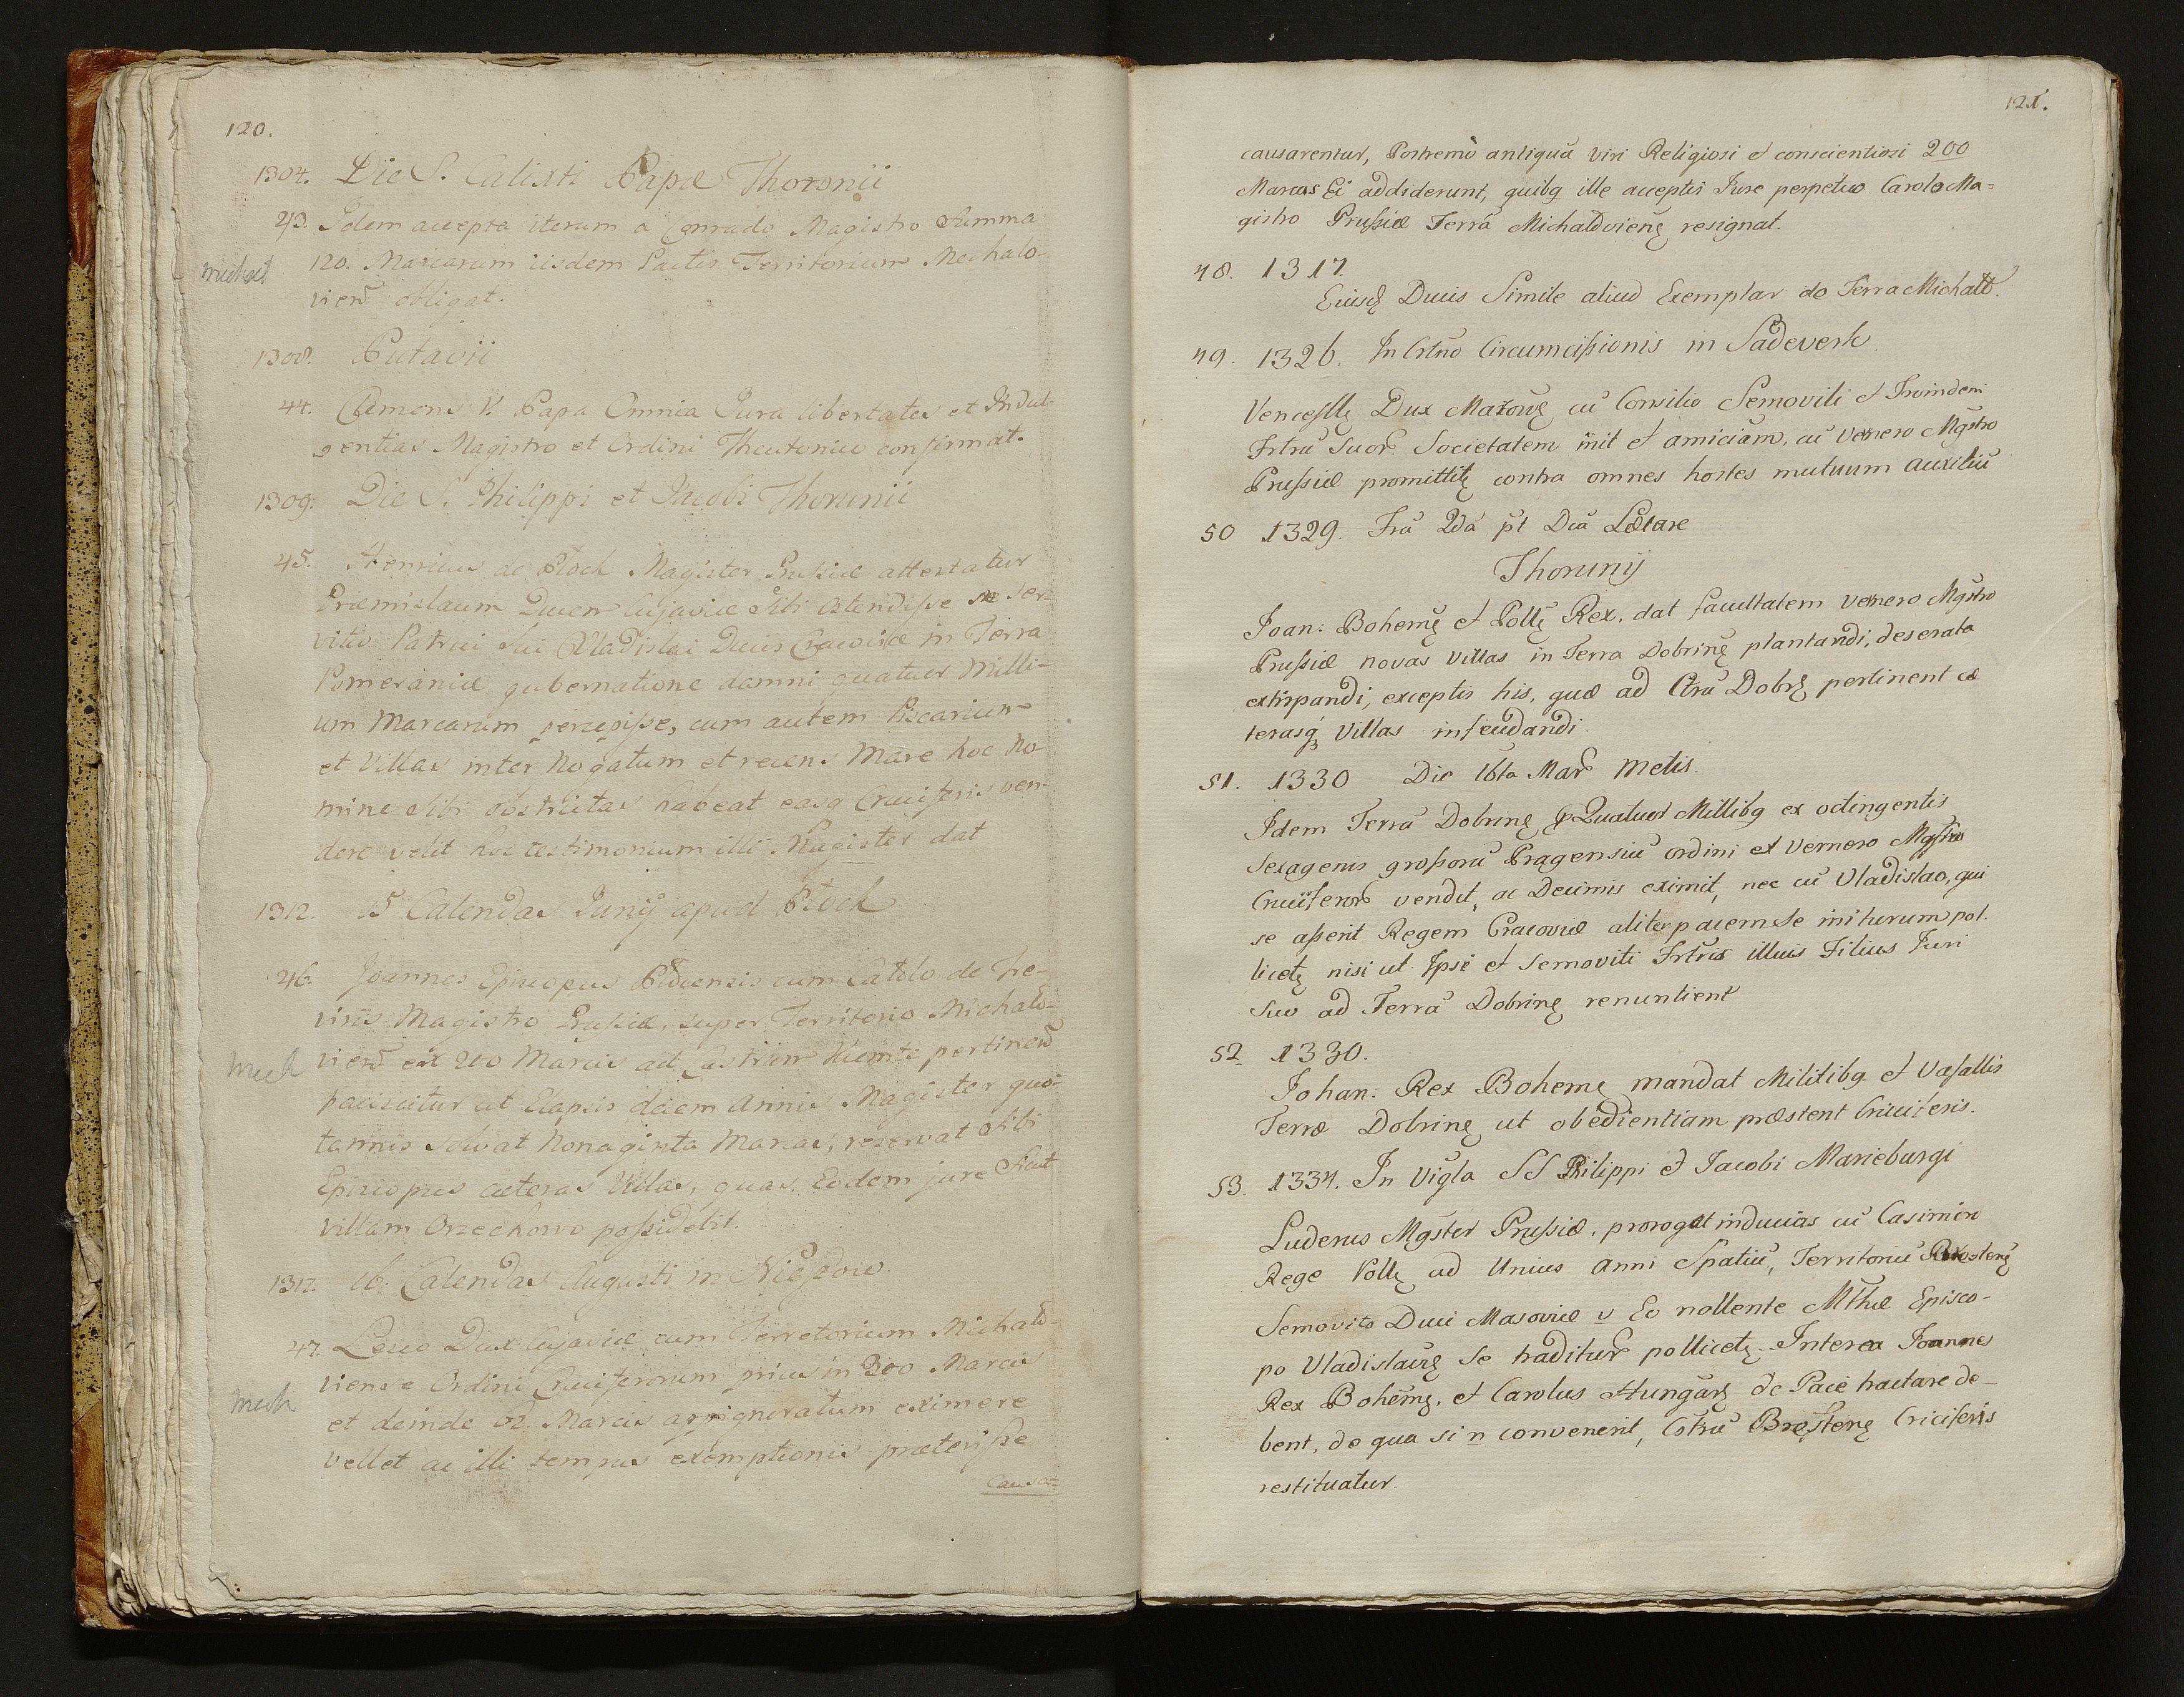 120.
1304. Die S. Calisti Papæ Thoronii
43. Idem accepta iterum a Conrado Magistro Summa
120. Marcarum iisdem Pactis Territorium Michalo-
vień obligat.
1308. Putavii
44. Clemens V. Papa Omnia Jura libertates et Indul-
gentias Magistro et Ordini Theutonico confirmat.
1309. Die S. Philippi et Jacobi Thorunii
45. Henricus de Plock Magister Prussiæ attestatur
Præmislaum Ducem Cujaviæ Sibi Ostendisse se ser-
vitio Patrui sui Vladislai Ducis Cracoviæ in Terra
Pomeraniæ gubernatione damni quatuor Milli-
um Marcarum percepisse, cum autem Piscarium
et Villas inter Nogatum et recens Mare hoc no-
mine Sibi obstrictas habeat easq Cruciferis ven-
dere velit hoc testimonium illi Magister dat
1312. 15 Calendas Junij apud Plock
46. Joannes Episcopus Plocensis cum Carolo de Tre-
viris Magistro Prussiæ, super Territorio Michalo-
Mich vień ex 200 Marcis ad Castrum pertineń
paciscitur ut Elapsis decem Annis Magister quo-
tannis solvat Nonaginta Marcas, reservat Sibi
Episcopus cæteras Villas, quas Eodem jure Sicut
villam Orzechowo possidebit.
1317. 16. Calendas Augusti in Nieszow.
47. Lesco Dux Cujaviæ cum Terretorium Michalo-
viense Ordini Cruciferorum prius in 300 Marcis
Mich et deinde Marcis appigneratum eximere
vellet ac illi tempus exemptionis præterisse
Causa-
121.
causarentur, Postremò antiquã viri Religiosi et conscientiosi 200
Marcas Ei addiderunt, quibg ille acceptis Jure perpetuo Carolo Ma-
gistro Prussiæ Terrã Michaldvienę resignat.
48. 1317.
Eiusdę Ducis Simile aliud Exemplar de Terra Michalt.
49. 1326. In Crtno Circumcissionis in Sadeverk
Vencesllę Dux Mazouę cũ Consilio Semovili et Troindem
Frtrũ Suor Societatem init et amiciam, cũ Vernero Mgstro
Prussiæ promittitę contra omnes hostes mutuum auxiliũ
50 1329. Frã 2dã pt Dcã Lætare
Thorunij
Joan: Bohemę et Pollę Rex, dat facultatem Vernero Mgstro
Prussiæ novas Villas in Terra Dobrinę plantandi, deserata
extirpandi, exceptis his, quæ ad Ctrũ Dobrę pertinent cæ
terasq Villas infeudandi.
51. 1330 Die 16ta Mar Metis.
Idem Terrã Dobrinę p Quatuor Millibg ex octingentis
Sexagenis grossorũ Pragensiũ ordini et Vernero Mgstro
Cruciferor vendit, ac Decimis eximit, nec cũ Vladislao, qui
se asserit Regem Cracoviæ aliter pacem Se initurum pol.
licetę nisi ut Ipse et Semoviti Frtris illius Filius Juri
Suo ad Terrã Dobrinę renuntient
52. 1330.
Johan: Rex Bohemę mandat Militibg et Vasallis
Terræ Dobrinę ut obedientiam præstent Cruciferis.
53. 1334. In Vigla SS Philippi et Jacobi Marieburgi
Luderus Mgster Prussiæ, prorogat inducias cũ Casimiro
Rege Pollę ad Unius Anni Spatiũ, Territoriũ
Semovito Duci Masoviæ v Eo nollente Mthæ Episco-
po Vladislavę Se traditur pollicetę. Interea Joannes
Rex Bohemę, et Carolus Hungarę de Pace tractare de-
bent, de qua si n convenerit, Cstrũ Brestenę Criciferis
restituatur.